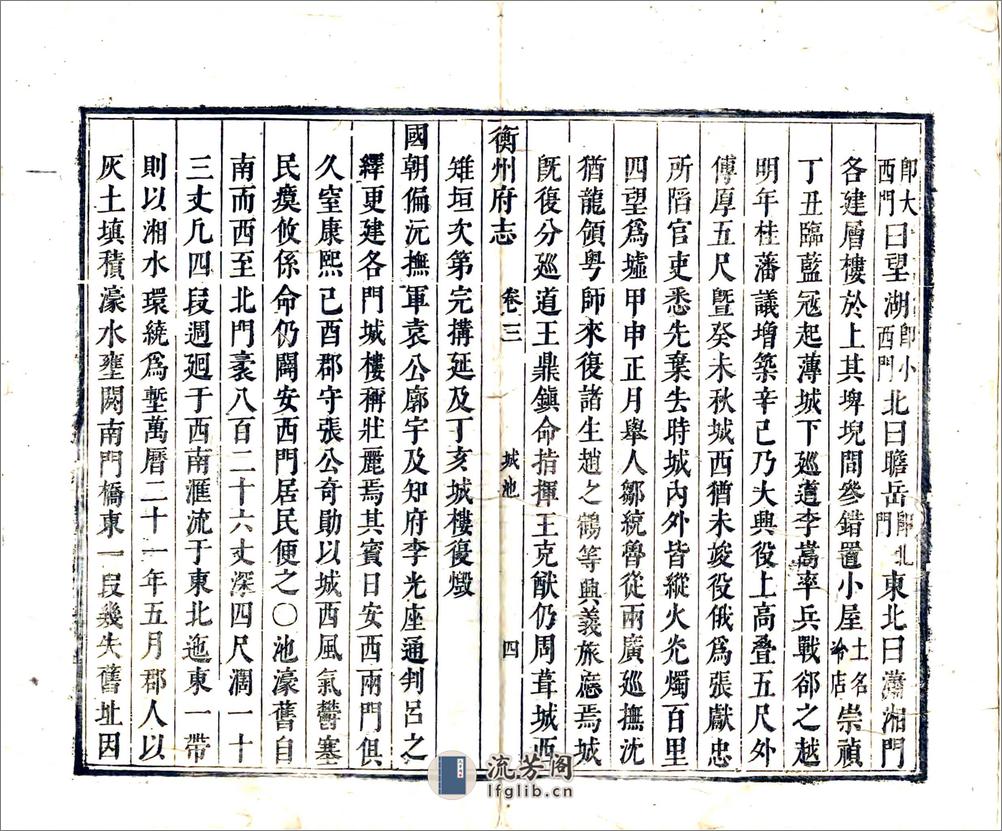 即大西門曰望湖即小西門北曰瞻岳即北門東北曰瀟湘門
各建層樓於上其埤堄間參錯置小屋土名冷店崇禎
丁丑臨藍冦起薄城下廵道李嵩率兵戰郤之越
明年桂藩議增築辛已乃大興役上高疊五尺外
傅厚五尺曁癸未秋城西猶未竣役俄爲張獻忠
所䧟官吏悉先棄去時城內外皆縱火光燭百里
四望爲墟甲申正月舉人鄒統魯從兩廣廵撫沈
猶龍領粤師來復諸生趙之鶴等興義旅應焉城
旣復分廵道王鼎鎭命指揮王克猷仍周葺城西
衡州府志 卷三 城池 四
雉垣次第完搆延及丁亥城樓復燬
國朝偏沅撫軍袁公廓宇及知府李光座通判呂之
繹更建各門城樓稱壯麗焉其賓日安西兩門俱
久窒康熙己酉郡守張公奇勛以城西風氣鬱塞
民瘼攸係命仍闢安西門居民便之〇池濠舊自
南而西至北門袤八百二十六丈深四尺濶一十
三丈凢四段週廻于西南滙流于東北迤東一帶
則以湘水環繞爲塹萬曆二十一年五月郡人以
灰土填積濠水壅闕南門橋東一段幾失舊址因
流芳阁
lfglib.cn